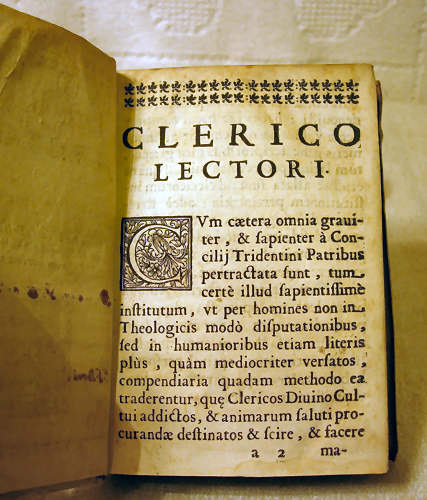 CLERICO
LECTORI.
CVm cætera omnia graui-
ter, & ſapienter à Con-
cilij Tridentini Patribus
pertractata ſunt, tum
certè illud ſapientiſſimè
inſtitutum, vt per homines non in
Theologicis modò diſputationibus,
ſed in humanioribus etiam literis
plùs, quàm mediocriter verſatos,
compendiaria quadam methodo ea
traderentur, quę Clericos Diuino Cul-
tui addictos, & animarum ſaluti pro-
curandæ deſtinatos & ſcire, & facere
a 2 ma-